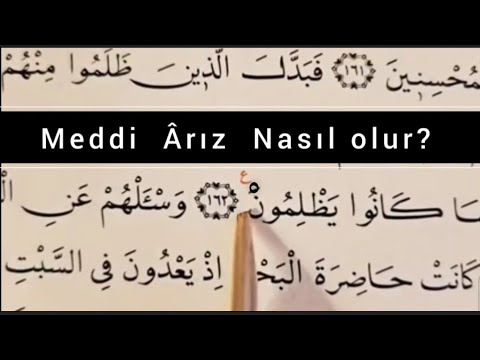 مُحْسِنِينَ ﴿١٦١﴾ فَبَدَّلَ الَّذِينَ ظَلَمُوا مِنْهُمْ
Meddi Ârız Nasıl olur?
كَانُوا يَظْلِمُونَ ع ﴿١٦٢﴾ وَسْـَٔلْهُمْ عَنِ
كَانَتْ حَاضِرَةَ الْبَحْرِ اِذْ يَعْدُونَ فِي السَّبْتِ